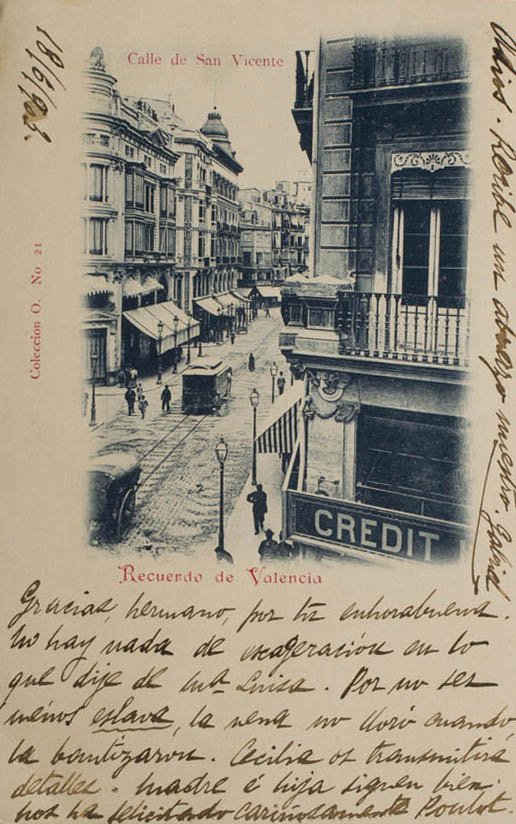 18/6/902.
Calle de San Vicente
Coleccion O. No 21
CREDIT
Recuerdo de Valencia
Gracias, hermano, por tu enhorabuena.
No hay nada de exageración en lo
que dije de Mª Luisa. Por no ser
menos eslava, la nena no lloró cuando
la bautizaron. Cecilia os transmitirá
detalles. Madre é hija siguen bien.
nos ha felicitado cariñosamente
Adios. Recibe un abrazo nuestro. Gabriel